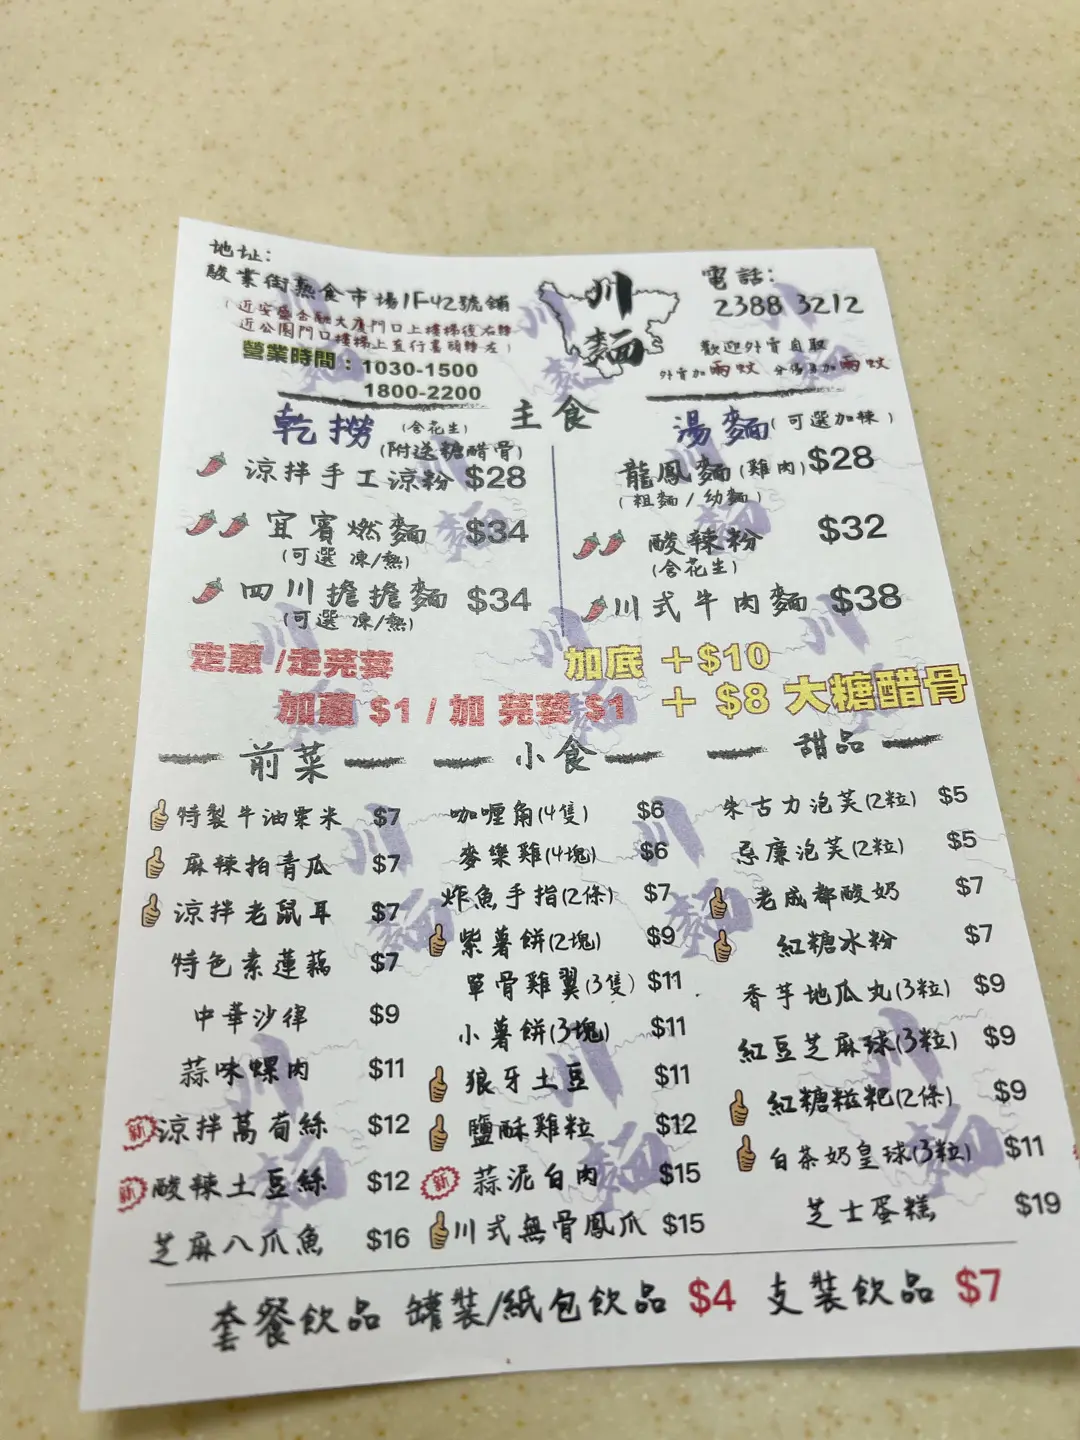 地址:
駿業街熟食市場1F42號鋪
(近安盛金融大廈門口上樓梯後右轉
近公園門口樓梯上直行盡頭轉左)
營業時間:1030-1500
1800-2200
川麵
電話:
2388 3212
歡迎外賣自取
外賣加兩蚊 分湯再加兩蚊
主食
乾撈 (含花生)
(附送糖醋骨)
涼拌手工涼粉 $28
宜賓燃麵 $34
(可選 凍/熱)
四川擔擔麵 $34
(可選 凍/熱)
湯麵(可選加辣)
龍鳳麵(雞肉) $28
(粗麵/幼麵)
酸辣粉 $32
(含花生)
川式牛肉麵 $38
走蔥/走芫荽
加蔥 $1/加 芫荽 $1
加底 +$10
+ $8 大糖醋骨
前菜
特製牛油粟米 $7
麻辣拍青瓜 $7
涼拌老鼠耳 $7
特色素蓮藕 $7
中華沙律 $9
蒜味螺肉 $11
新 涼拌萵荀絲 $12
新 酸辣土豆絲 $12
芝麻八爪魚 $16
小食
咖喱角(4隻) $6
麥樂雞(4塊) $6
炸魚手指(2條) $7
紫薯餅(2塊) $9
單骨雞翼(3隻) $11
小薯餅(3塊) $11
狼牙土豆 $11
鹽酥雞粒 $12
新 蒜泥白肉 $15
川式無骨鳳爪 $15
甜品
朱古力泡芙(2粒) $5
忌廉泡芙(2粒) $5
老成都酸奶 $7
紅糖冰粉 $7
香芋地瓜丸(3粒) $9
紅豆芝麻球(3粒) $9
紅糖糍粑(2條) $9
白茶奶皇球(3粒) $11
芝士蛋糕 $19
套餐飲品 罐裝/紙包飲品 $4 支裝飲品 $7